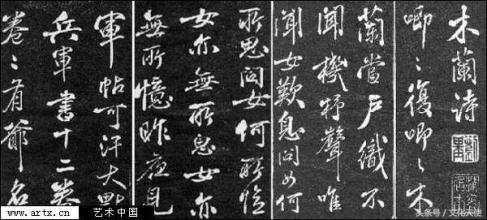 木蘭诗
唧〻復唧〻木
蘭當戶織不
聞機杼聲唯
聞女歎息問女何
所思問女何所憶
女亦無所思女亦
無所憶昨夜見
軍帖可汗大點
兵軍書十二卷
卷〻有爺名
www.artx.cn 艺术中国
头条号/文化天使